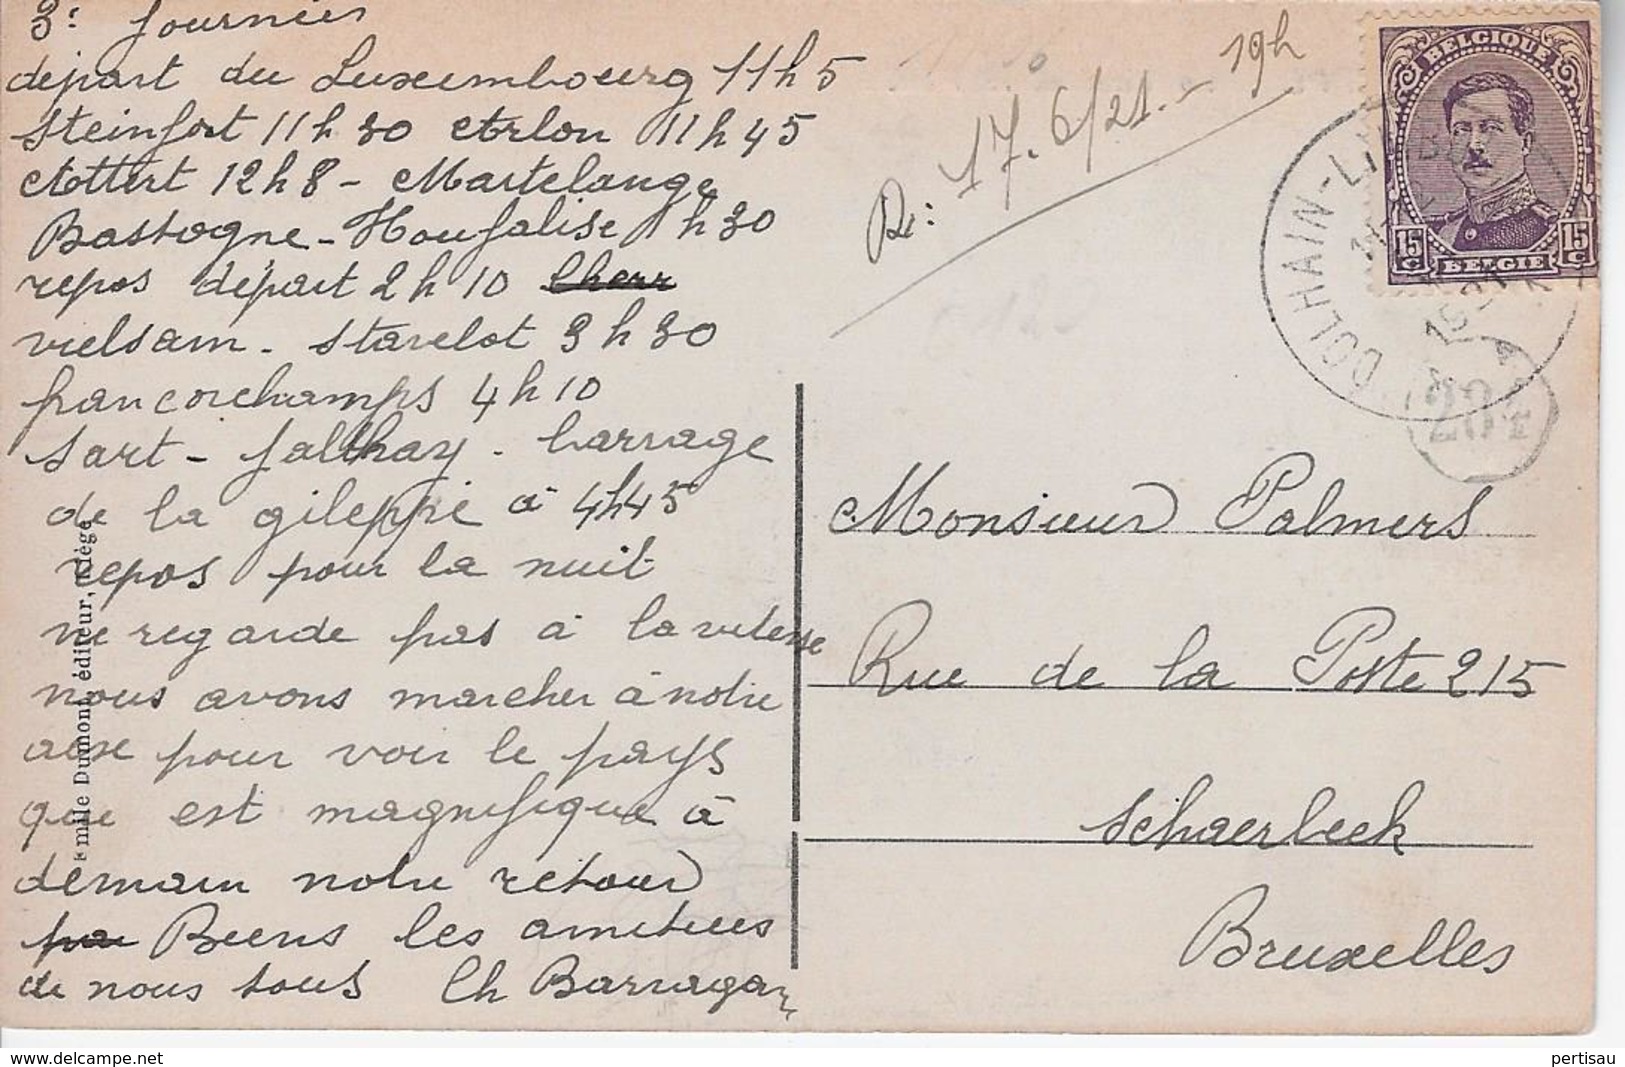 3e journeé
départ du Luxembourg 11h5
Steinfort 11h30 Arlon 11h45
Attert 12h8 - Martelange
Bastogne - Houfalise 1h30
repos départ 2h10 Cherr
vielsam - Stavelot 3h30
francorchamps 4h10
Sart - Jalhay - barrage
de la gileppe à 4h45
repos pour la nuit
ne regarde pas à la vitesse
nous avons marcher à notre
aise pour voir le pays
que est magnifique à
demain notre retour
Biens les amitiees
de nous tous Ch Barragan
Emile Dumont, éditeur, Liége
R: 17.6/21.- 19h
BELGIQUE
15 c 15 c
BELGIE
DOLHAIN-LIMB
1921
204
Monsieur Palmers
Rue de la Poste 215
Schaerbeek
Bruxelles
pertisau